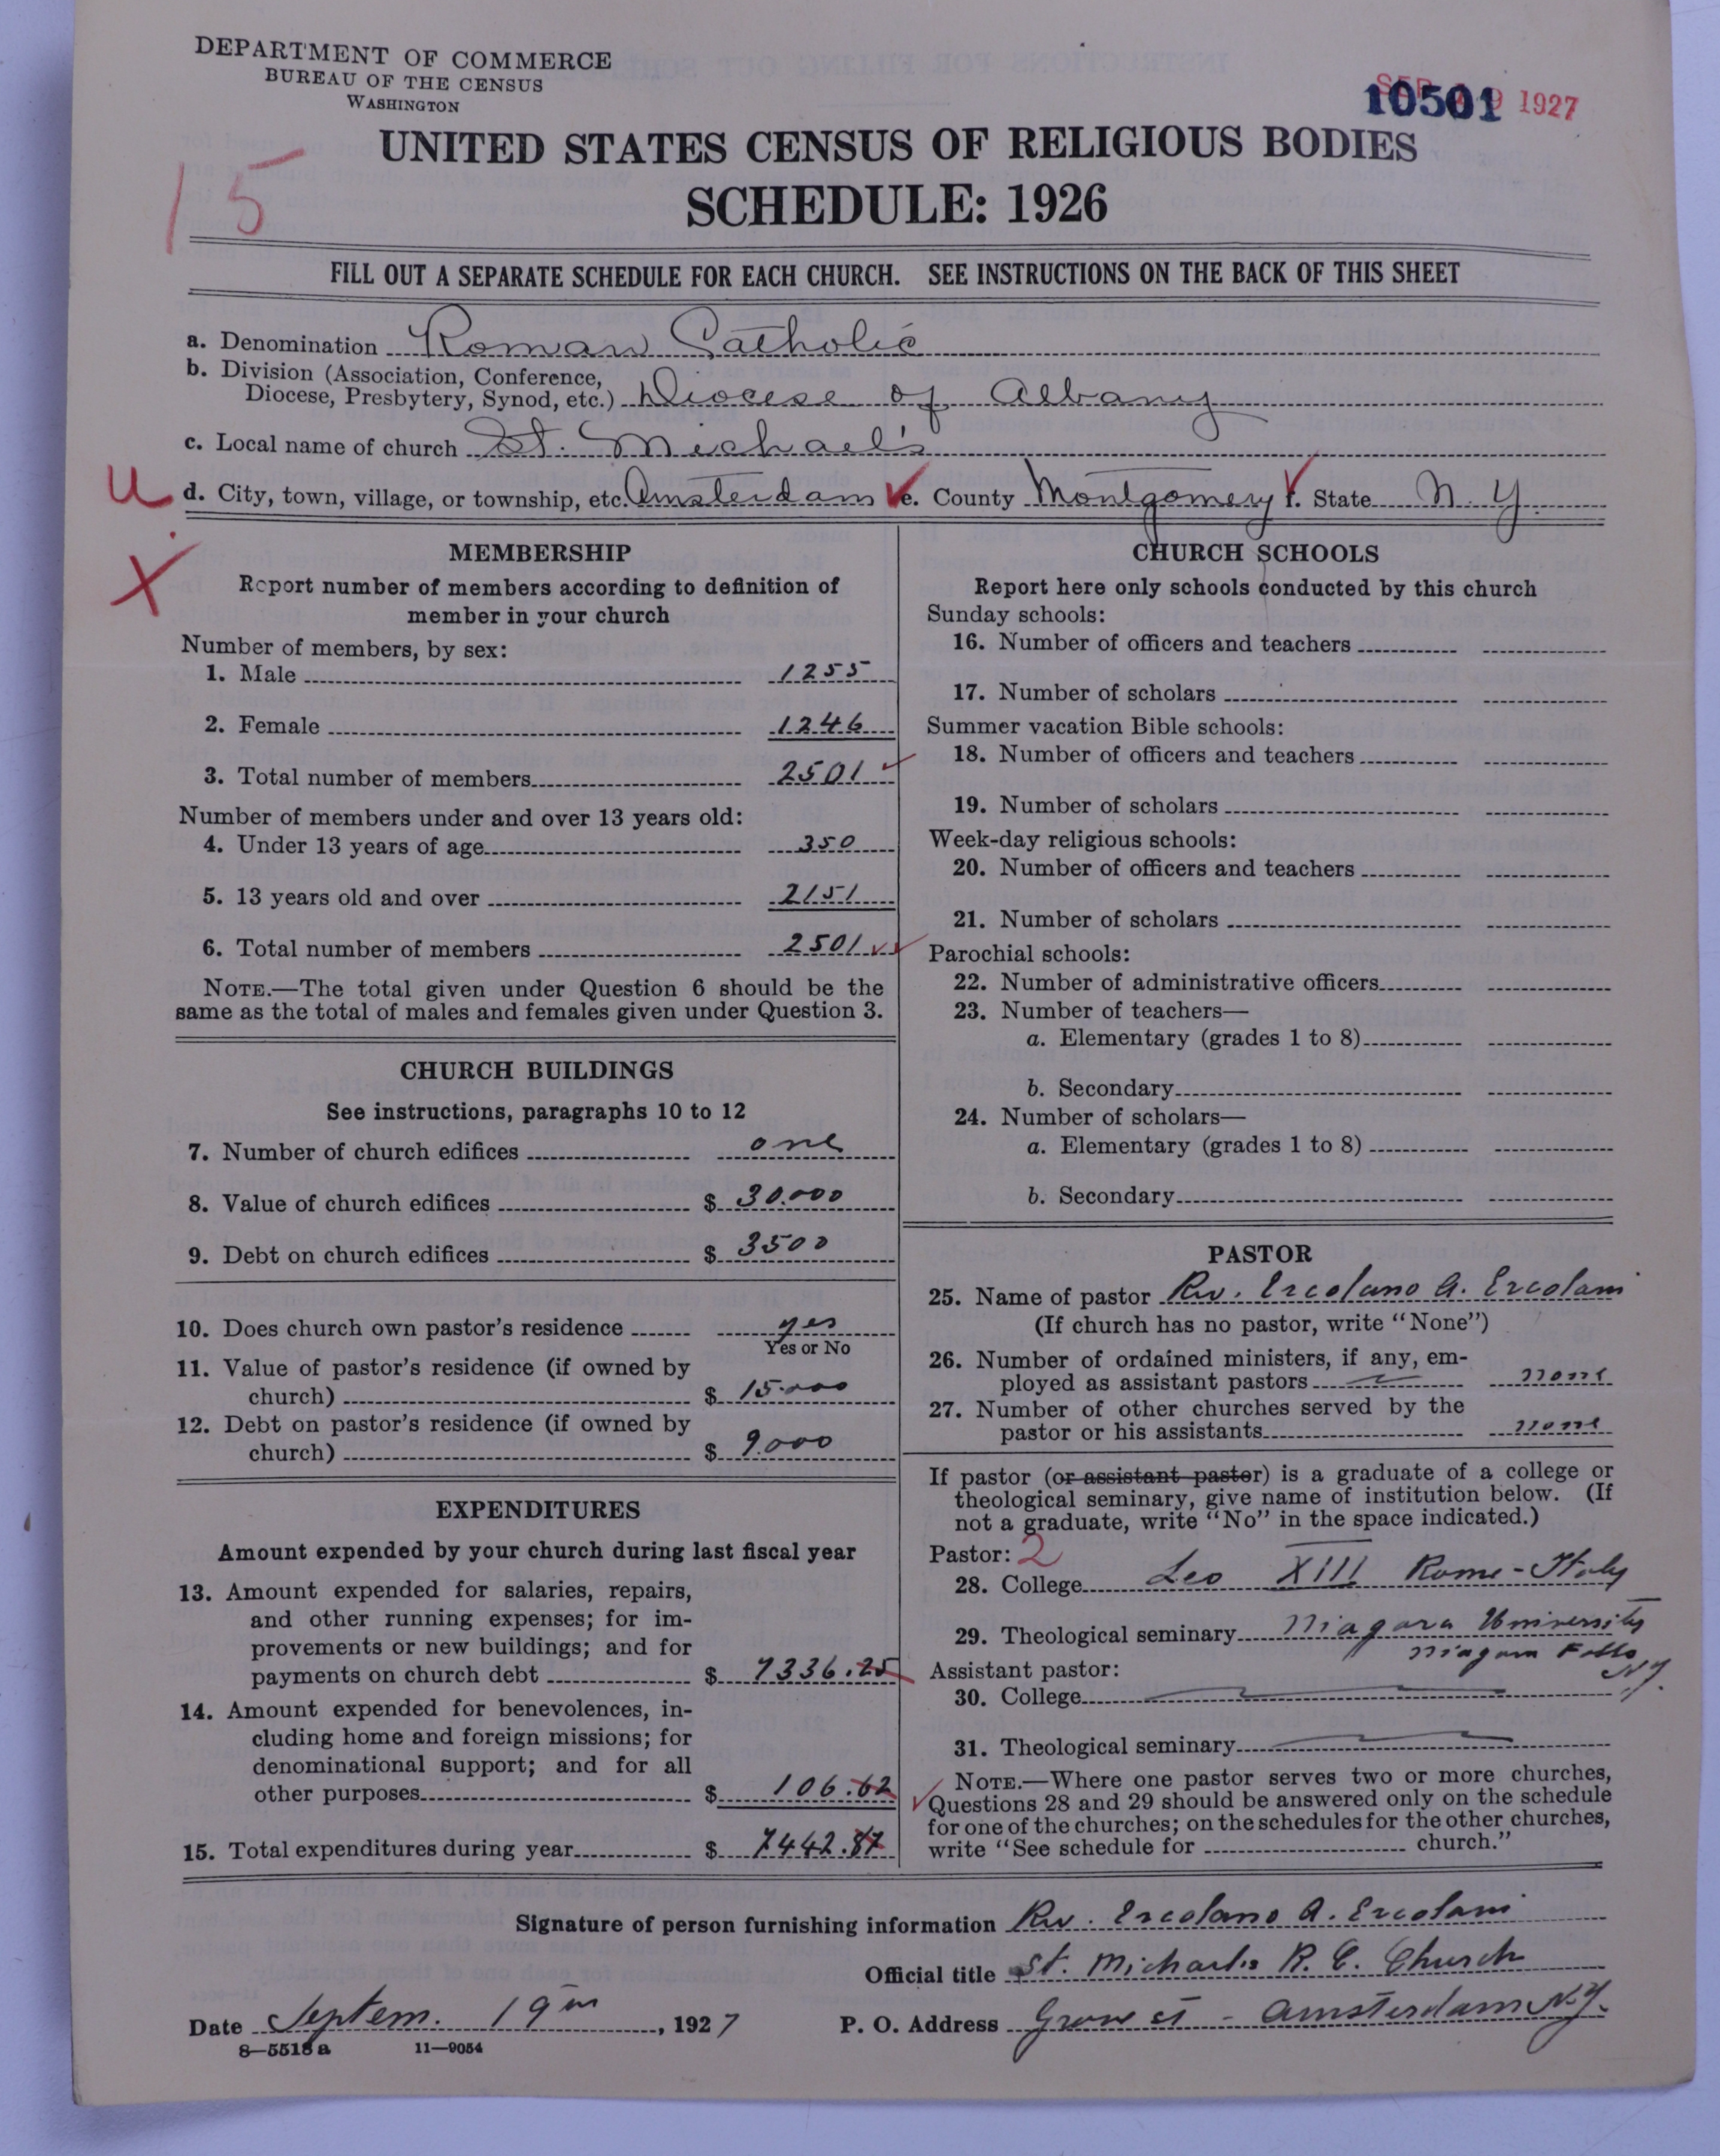 DEPARTMENT OF COMMERCE
BUREAU OF THE CENSUS
WASHINGTON
10501
1927
UNITED STATES CENSUS OF RELIGIOUS BODIES
SCHEDULE: 1926
15
FILL OUT A SEPARATE SCHEDULE FOR EACH CHURCH. SEE INSTRUCTIONS ON THE BACK OF THIS SHEET
a. Denomination Roman Catholic
b. Division (Association, Conference,
Diocese, Presbytery, Synod, etc.) Diocese of Albany
c. Local name of church St. Michael's
U d. City, town, village, or township, etc. Amsterdam e. County Montgomery f. State N. Y.
X
MEMBERSHIP
Report number of members according to definition of
member in your church
Number of members, by sex:
1. Male 1255
2. Female 1246
3. Total number of members 2501
Number of members under and over 13 years old:
4. Under 13 years of age 350
5. 13 years old and over 2151
6. Total number of members 2501
NOTE.—The total given under Question 6 should be the
same as the total of males and females given under Question 3.
CHURCH BUILDINGS
See instructions, paragraphs 10 to 12
7. Number of church edifices one
8. Value of church edifices $ 30.000
9. Debt on church edifices $ 3500
10. Does church own pastor's residence yes
Yes or No
11. Value of pastor's residence (if owned by
church) $ 15.000
12. Debt on pastor's residence (if owned by
church) $ 9.000
EXPENDITURES
Amount expended by your church during last fiscal year
13. Amount expended for salaries, repairs,
and other running expenses; for im-
provements or new buildings; and for
payments on church debt $ 7336.25
14. Amount expended for benevolences, in-
cluding home and foreign missions; for
denominational support; and for all
other purposes $ 106.62
15. Total expenditures during year $ 7442.87
CHURCH SCHOOLS
Report here only schools conducted by this church
Sunday schools:
16. Number of officers and teachers
17. Number of scholars
Summer vacation Bible schools:
18. Number of officers and teachers
19. Number of scholars
Week-day religious schools:
20. Number of officers and teachers
21. Number of scholars
Parochial schools:
22. Number of administrative officers
23. Number of teachers—
a. Elementary (grades 1 to 8)
b. Secondary
24. Number of scholars—
a. Elementary (grades 1 to 8)
b. Secondary
PASTOR
25. Name of pastor Rev. Ercolano A. Ercolani
(If church has no pastor, write "None")
26. Number of ordained ministers, if any, em-
ployed as assistant pastors none
27. Number of other churches served by the
pastor or his assistants none
If pastor (or assistant pastor) is a graduate of a college or
theological seminary, give name of institution below. (If
not a graduate, write "No" in the space indicated.)
Pastor: 2
28. College Leo XIII Rome - Italy
29. Theological seminary Niagara University
Niagara Falls
N.Y.
Assistant pastor:
30. College
31. Theological seminary
NOTE.—Where one pastor serves two or more churches,
Questions 28 and 29 should be answered only on the schedule
for one of the churches; on the schedules for the other churches,
write "See schedule for church."
Signature of person furnishing information Rev. Ercolano A. Ercolani
Official title St. Michael's R. C. Church
Date Septem. 19th, 1927 P. O. Address Grove St - Amsterdam N.Y.
8—5518a 11—9054